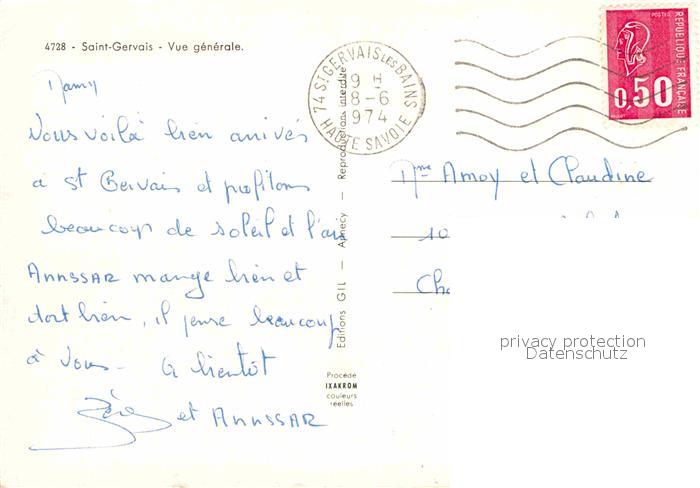 4728 - Saint-Gervais - Vue générale.
Mamy
Nous voilà bien arrivés
à St Gervais et profitons
beaucoup de soleil et l'air
ANNSSAR mange bien et
dort bien, il pense beaucoup
à Vous - A bientôt
et ANNSSAR
Editions GIL — Annecy — Reproductions interdites
Procédé
IXAKROM
couleurs
réelles
74 ST GERVAIS LES BAINS
9 H
8-6
1974
HAUTE SAVOIE
POSTES
REPUBLIQUE FRANÇAISE
0,50
Mme Amoy et Claudine
10
privacy protection
Datenschutz